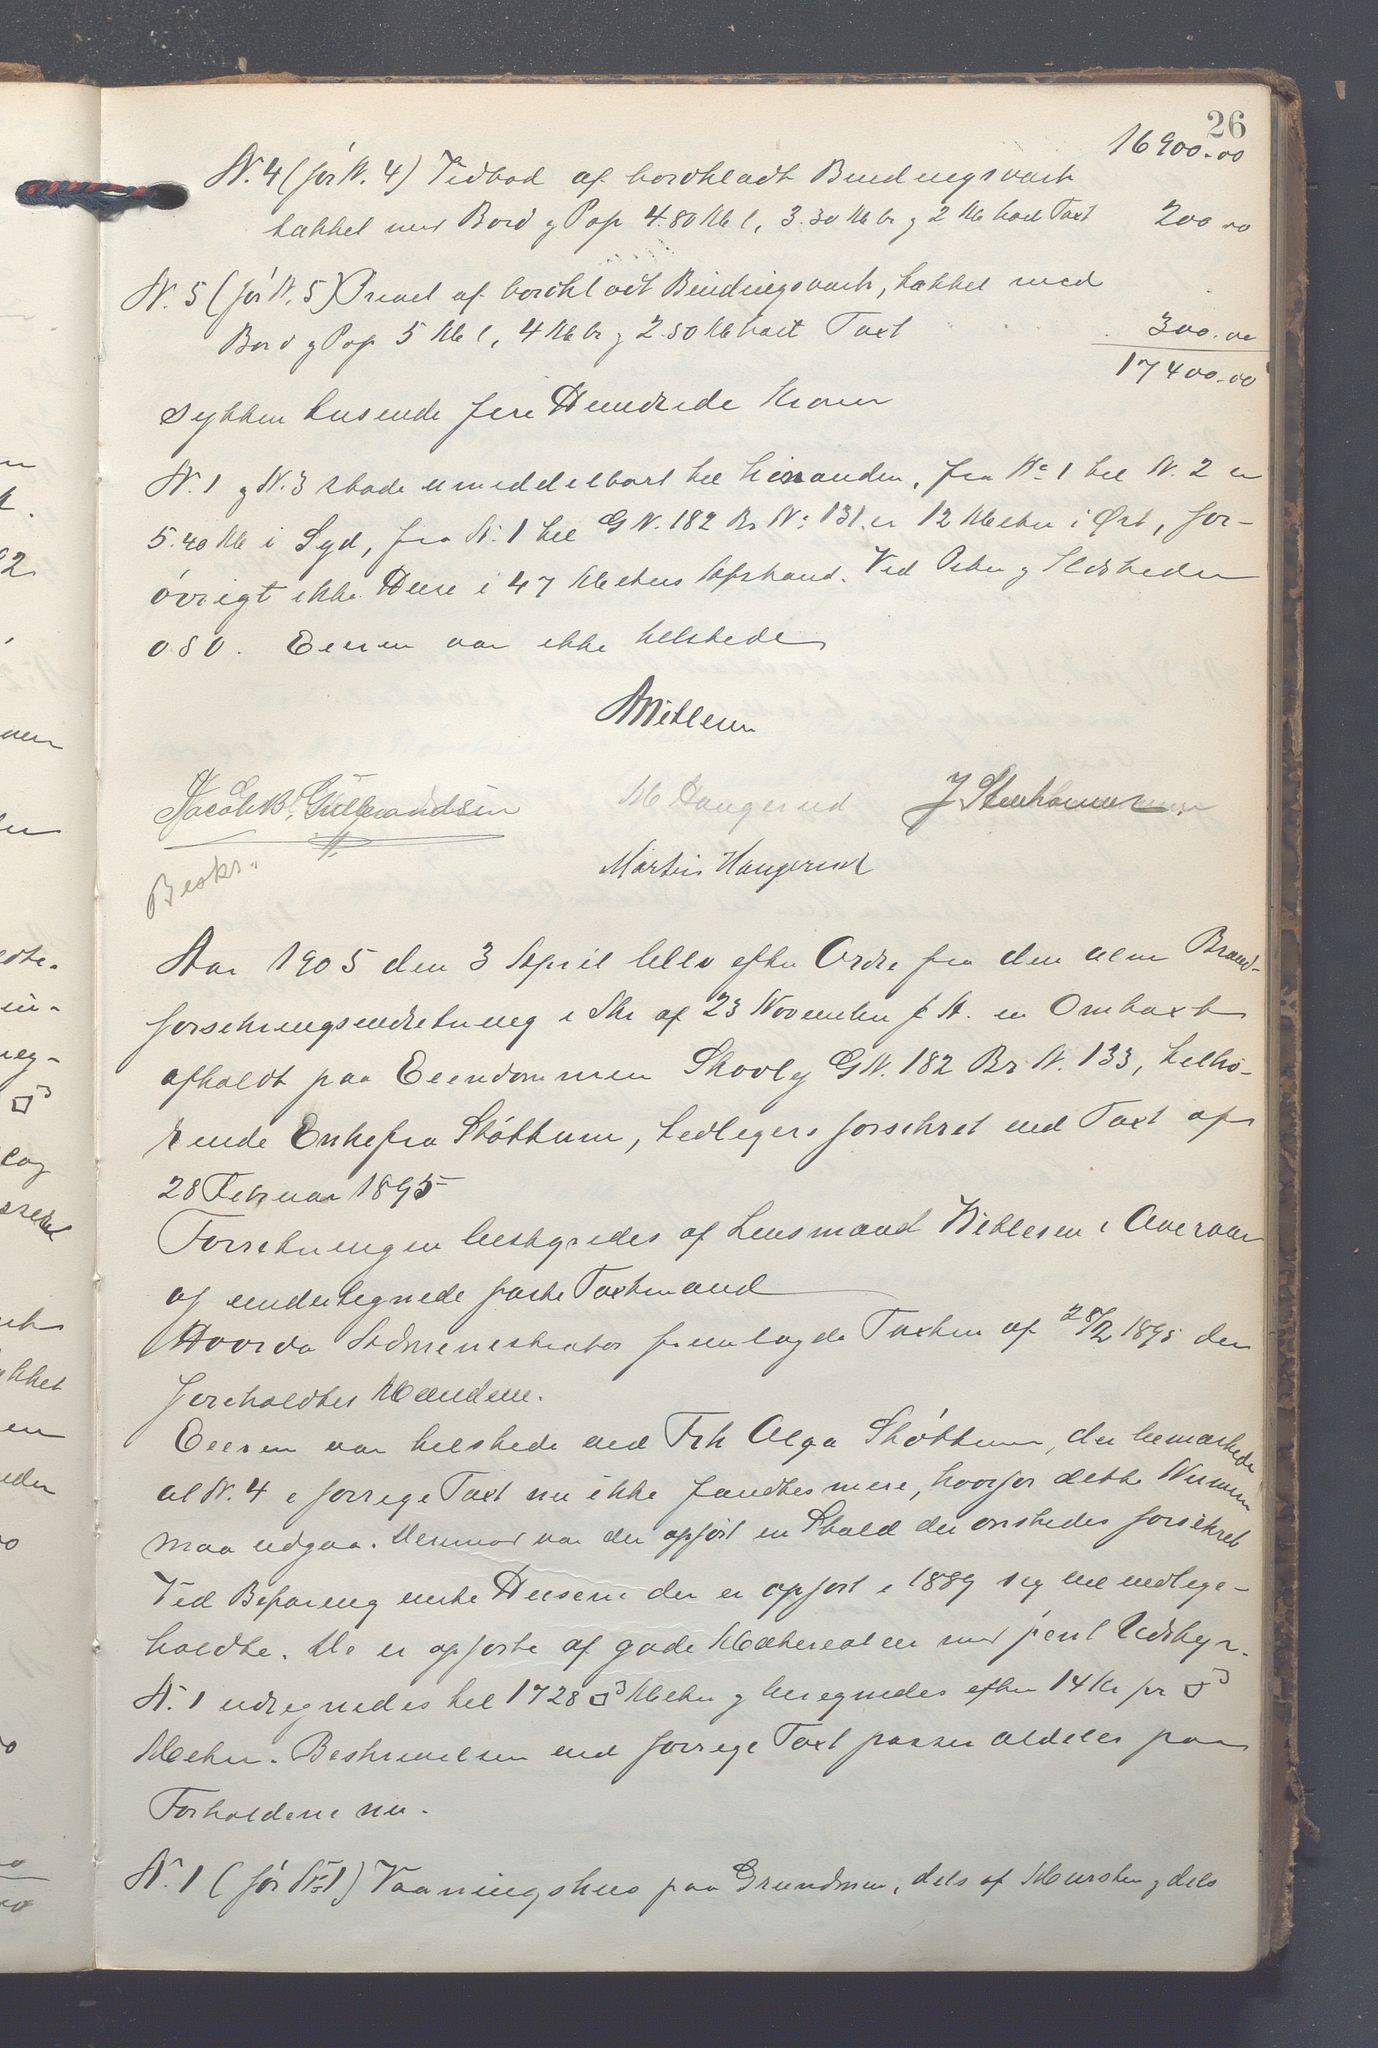 26
16900.00
N. 4 (før N. 4) Vedbod af bordklædt Bindingsværk
tækket med Bord og Pap 4.80 M l, 3.30 M br og 2 M høi Taxt 200.00
N. 5 (før N. 5) Privet af bordklædt Bindingsværk, tækket med
Bord og Pap 5 M l, 4 M br og 2.50 M høit Taxt 300.00
17400.00
sytten tusende fire Hundrede Kroner
N. 1 og N. 3 støde umiddelbart til hinanden, fra No 1 til N. 2 er
5.40 M i Syd, fra N. 1 til G N. 182 Br No 131 er 12 Meter i Øst, for-
øvrigt ikke Huse i 47 Meters Afstand. Ved Piber og Ildsteder
o s v. Eieren var ikke tilstede
AWillesen
Jacob B. Gulbrandsen M Haugerud J Steenhammer
Martin Haugerud
Beskr.
Aar 1905 den 3 April blev efter Ordre fra den alm Brand-
forsikringsindretning i Skr af 23 November f A. en Omtaxt
afholdt paa Eiendommen Skovly G N. 182 Br N. 133, tilhø-
rende Enkefru Støttum, tidligere forsikret ved Taxt af
28 Februar 1895
Forretningen bestyredes af Lensmand Willesen i
og undertegnede faste Taxtmænd
Hvorda Administrator fremlagde Taxten af 28/2 1895 der
foreholdtes Mændene.
Eieren var tilstede ved Frk Olga Støttum, der bemærkede
at N. 4 i forrige Taxt nu ikke fandtes mere, hvorfor dette Nummer
maa udgaa. Derimod var der opført en Stald der ønskedes forsikret
Ved Befaring Husene der er opført i 1889 sig vel vedlige-
holdte. De er opførte af gode Materialier med pent Udstyr.
N. 1 udregnedes til 1728 □3 Meter og beregnedes efter 14 Kr pr □3
Meter. Beskrivelsen ved forrige Taxt passer aldeles paa
Forholdene nu.
N. 1 (før No 1) Vaaningshus paa Grundmur, dels af Mursten og dels